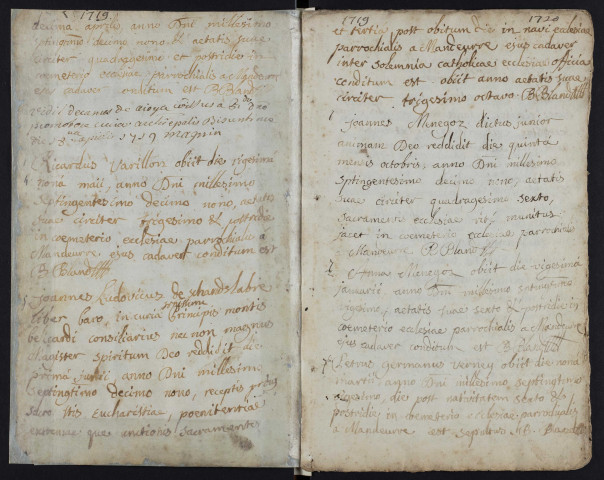 1719.
decima aprilis anno Dni millesimo
septingentesimo decimo nono aetatis suae
circiter quadragesimo et postridie in
cemeterio ecclesiae parrochialis
ejus cadaver conditum est B Bland
1719
Ricardus Varillon obiit die vigesima
nona maii, anno Dni millesimo
septingentesimo decimo nono, aetatis
suae circiter trigesimo & postridie
in cemeterio ecclesiae parrochialis a
Mandeurre ejus cadaver conditum est
B Bland
Joannes Ludovicus de
liber baro, in curia principis montis
belicardi consiliarius nec non magnus
Magister spiritum Deo reddidit die
prima junii, anno Dni millesimo
septingtimo decimo nono, receptis prius
Eucharistiae, poenitentiae
extremae que unctionis sacramentis
1719 1720
et tertia post obitum die in navi ecclesiae
parrochialis a Mandeurre ejus cadaver
inter solemnia catholicae ecclesiae officia
conditum est obiit anno aetatis suae
circiter trigesimo octavo B Bland
Joannes Menegoz dictus junior
animam Deo reddidit die quinta
mensis octobris, anno Dni millesimo
septingentesimo decimo nono, aetatis
suae circiter quadragesimo sexto,
sacramentis ecclesiae munitus
jacet in coemeterio ecclesiae parrochialis
a Mandeurre B Bland
Anna Menegoz obiit die vigesima
januarii, anno Dni millesimo
vigesimo, aetatis suae sexto & postridie in
coemeterio ecclesiae parrochialis a Mandeurre
ejus cadaver conditum est B Bland
Petrus germanus verney obiit die nona
martii, anno Dni millesimo, septingentesimo
vigesimo, die post nativitatem sexto &
postridie in cemeterio ecclesiae parrochialis
a Mandeurre est sepultus B Bland